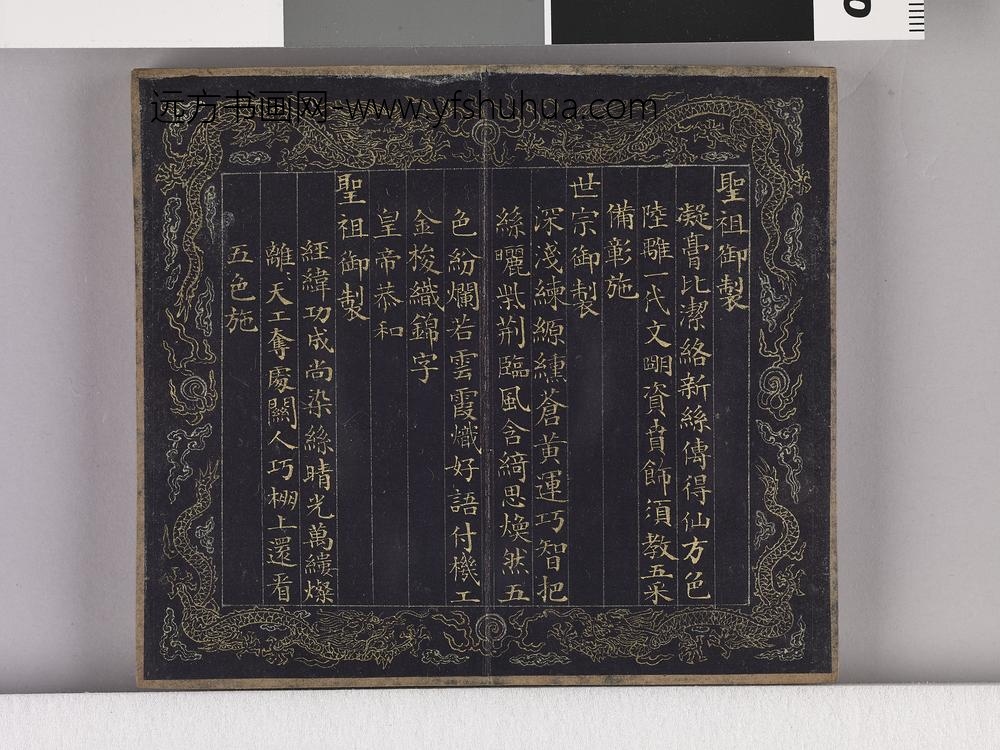 远方书画网-www.yfshuhua.com
聖祖御製
凝膏比潔絡新絲傳得仙方色
陸離一代文明資賁飾須教五采
備彰施
世宗御製
深淺練縓纁蒼黃運巧智把
絲曬柴荊臨風含綺思煥然五
色紛爛若雲霞熾好語付機工
金梭織錦字
皇帝恭和
聖祖御製
經緯功成尚染絲晴光萬縷燦
離〻天工奪處關人巧棚上還看
五色施